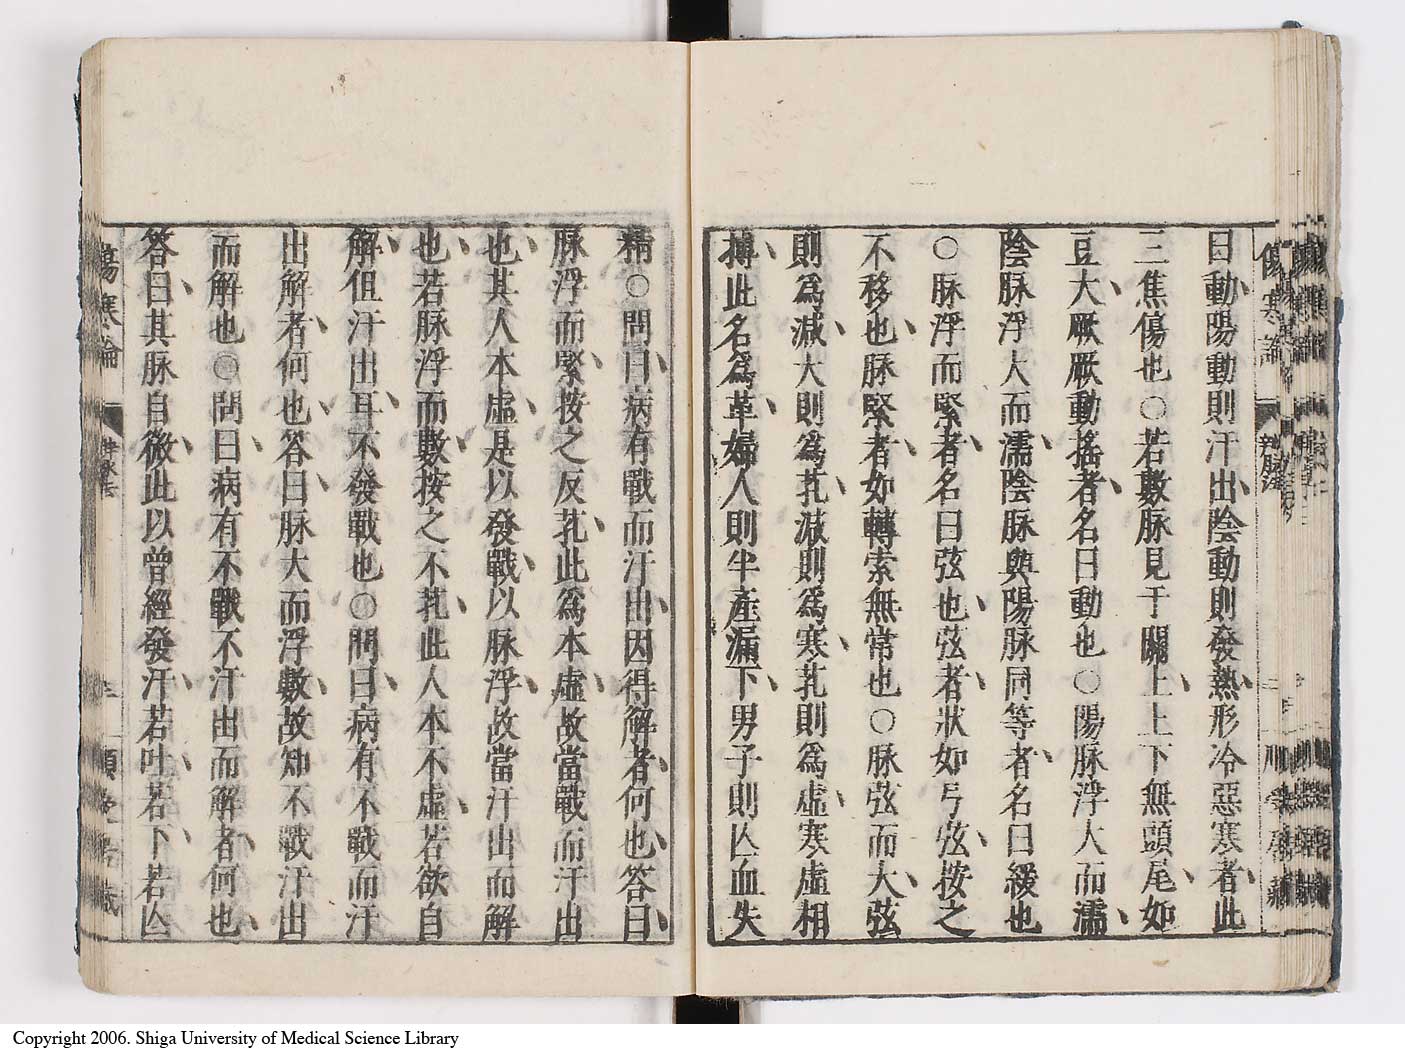 曰動陽動則汗出陰動則發熱形冷惡寒者此
三焦傷也○若數脉見于關上上下無頭尾如
豆大厥厥動搖者名曰動也○陽脉浮大而濡
陰脉浮大而濡陰脉與陽脉同等者名曰緩也
○脉浮而緊者名曰弦也弦者狀如弓弦按之
不移也脉緊者如轉索無常也○脉弦而大弦
則爲減大則爲芤減則爲寒芤則爲虛寒虛相
搏此名爲革婦人則半產漏下男子則亾血失
精○問曰病有戰而汗出因得解者何也答曰
脉浮而緊按之反芤此爲本虛故當戰而汗出
也其人本虛是以發戰以脉浮故當汗出而解
也若脉浮而數按之不芤此人本不虛若欲自
解但汗出耳不發戰也○問曰病有不戰而汗
出解者何也答曰脉大而浮數故知不戰汗出
而解也○問曰病有不戰不汗出而解者何也
答曰其脉自微此以曾經發汗若吐若下若亾
傷寒論
Copyright 2006. Shiga University of Medical Science Library